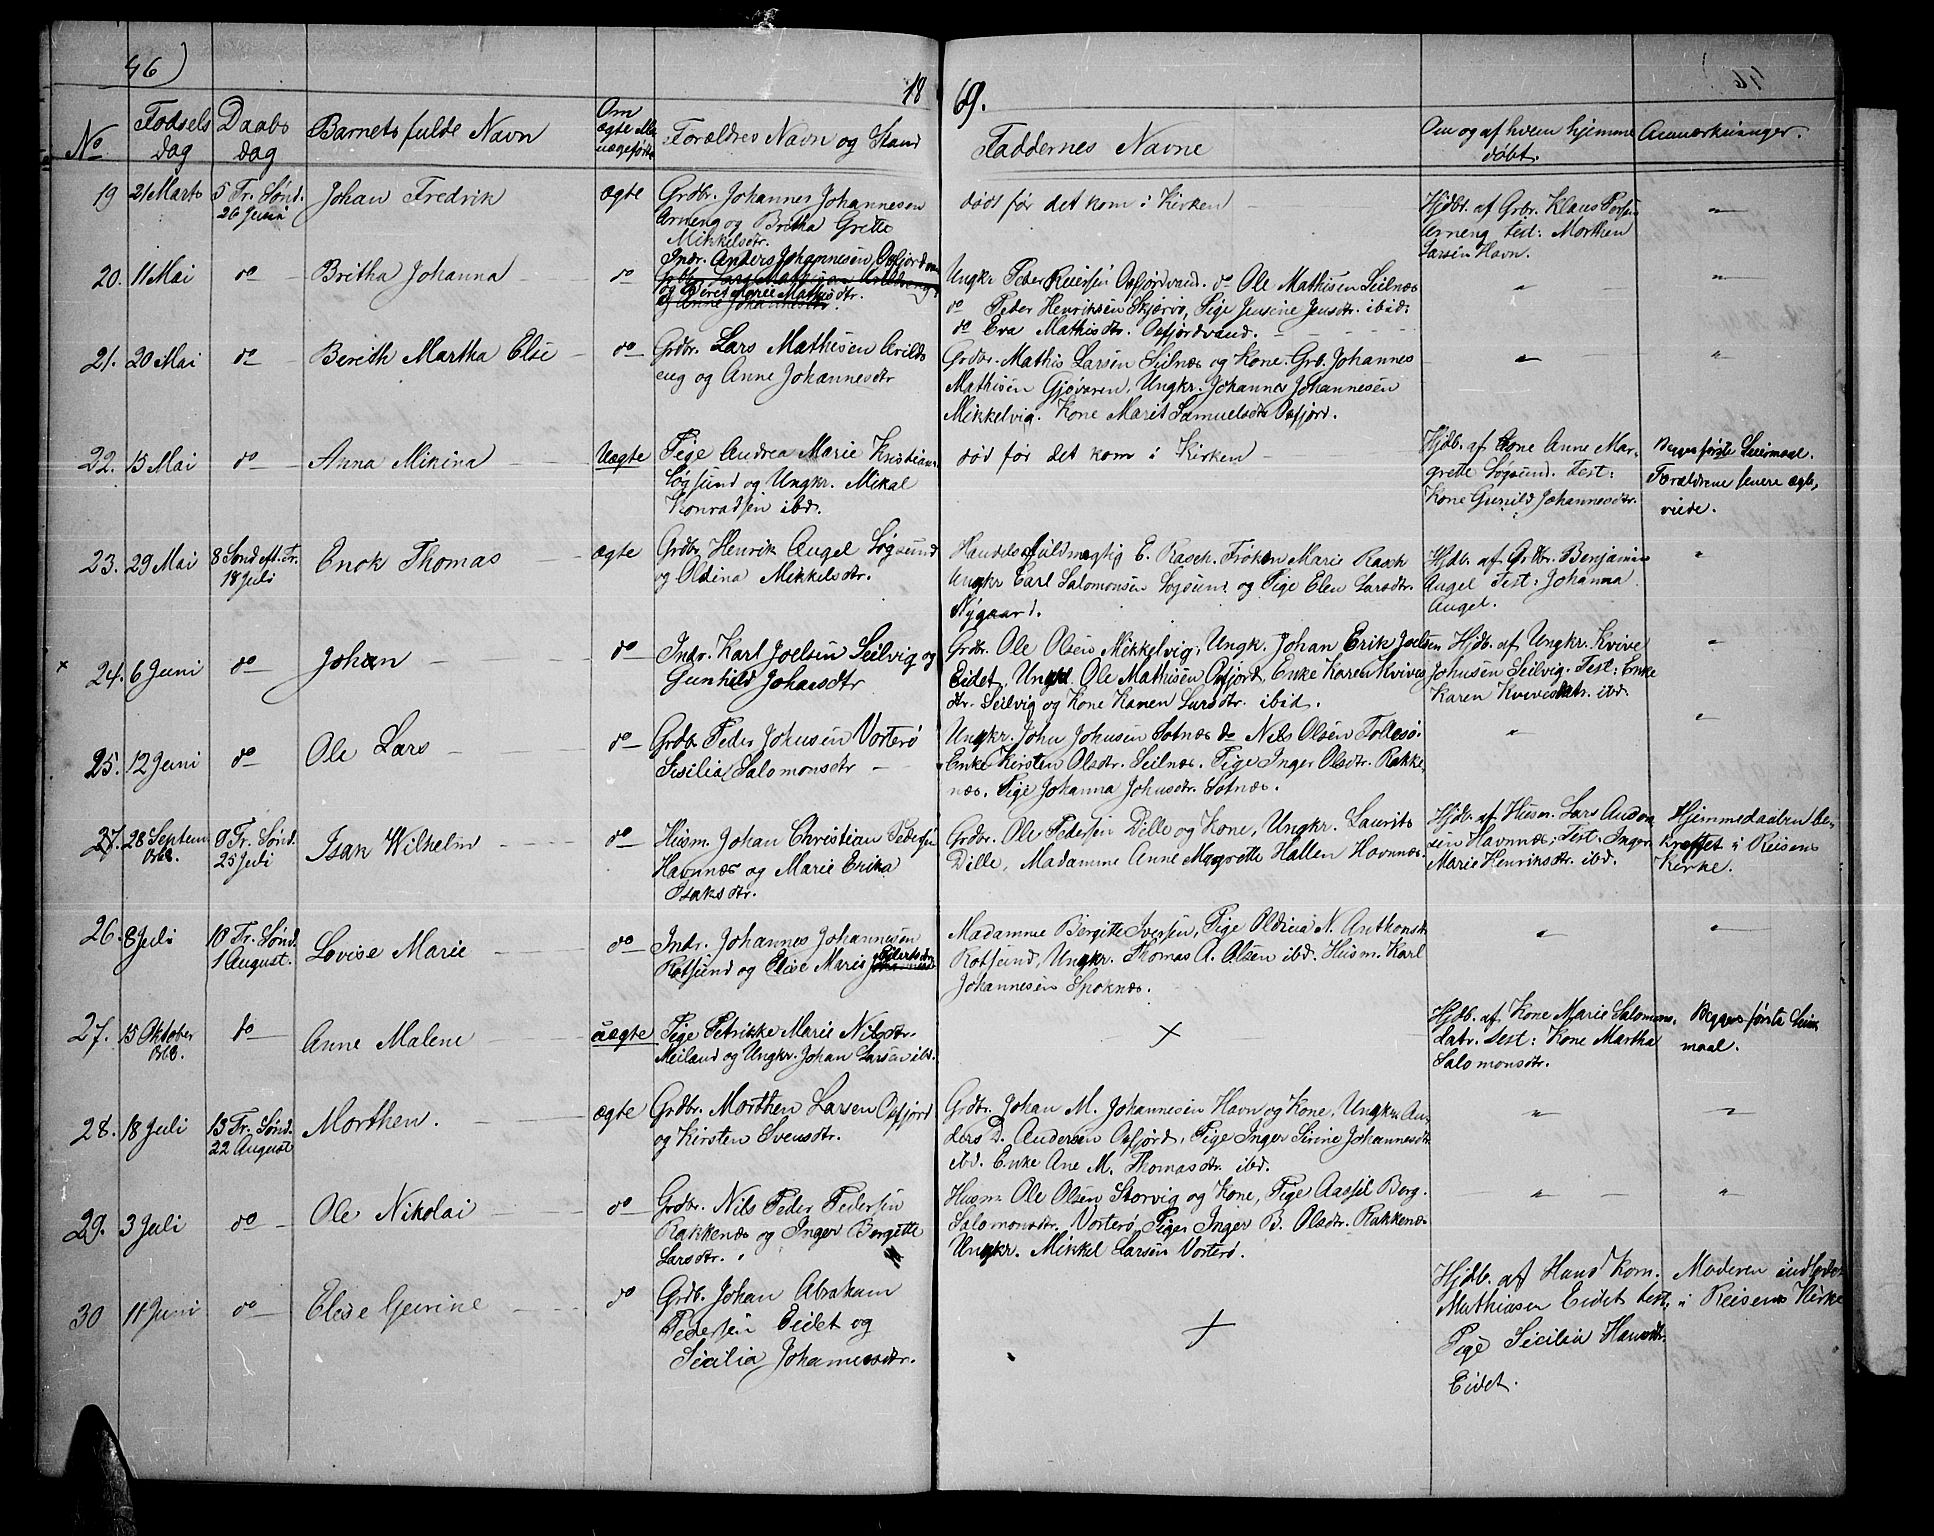 46)
18 69.
No
Fødsels dag
Daabs dag
Barnets fulde Navn
Om ægte eller uægefødt
Forældres Navn og Stand
Faddernes Navne
Om og af hvem hjemme døbt.
Anmærkninger.
19 21 Marts 5 Tr. Sønd. 26 Juni Johan Fredrik ægte
Grdbr. Johannes Johannesen
Arneng og Britha Grette
Mikkelsdtr.
dødt før det kom i Kirken –
Hjdbt. af Grbr. Klaus
Arneng Test: Morthen
Larsen Havn.
20. 11 Mai do Britha Johanna do
Indr. Anders Johannesen, Oxfjordvan
og Beret Marie Mathisdtr.
og Anne Johannesdtr.
Ungkr Peder Reiersen Oxfjordvand. do Ole Mathisen Seilnæs
do Peder Henriksen Skjærvø, Pige Jensine Jensdtr. ibid:
do Eva Mathisdtr. Oxfjordvand.
21. 20 Mai do Berith Martha Else do
Grdbr. Lars Mathisen Arilds
eng og Anne Johannesdtr
Grdbr. Mathis Larsen Seilnæs og Kone. Grb. Johannes
Mathisen Gjøvaren, Ungkr. Johannes Johannesen
Mikkelvig. Kone Marit Samuelsdtr Oxfjord.
22. 15 Mai do Anna Mikina Uægte
Pige Andrea Marie Kristians
Løgsund og Ungkr. Mikal
Konradsen ibd.
død før det kom i Kirken –
Hjdb. af Kone Anne Mar-
grette Løgsund. Test:
Kone Gunild Johannesdtr.
Begges første Leiermaal.
Forældrene senere ægte-
viede.
23. 29 Mai 8 Sønd eft. Tr. 18 Juli Enok Thomas ægte
Grdbr. Henrik Angel Løgsund
og Oldina Mikkelsdtr.
Handelsfuldmægtig E. Rasch. Frøken Marie Rasch
Ungkr Carl Salomonsen Løgsund og Pige Elen Larsdtr.
Nygaard.
Hjdb. af Grdbr. Benjamin
Angel Test: Johanna
Angel.
24. 6 Juni do Johan do
Indr. Karl Joelsen Seilvig og
Gunhild Johansdtr
Grdbr. Ole Olsen Mikkelvig, Ungk. Johan Erik Joelsen
Eidet, Ungk. Ole Mathisen Oxfjord, Enke Karen Kvives
dtr. Seilvig og Kone Karen Larsdtr. ibid.
Hjdb. af Ungkr. Kvive
Johnsen Seilvig. Test: Enke
Karen Kvivesdatr. ibd.
25. 12 Juni do Ole Lars do
Grdb. Peder Johnsen Vorterø
Sisilia Salomonsdtr
Ungkr. John Johnsen Sotnæs do Nils Olsen Follesø.
Enke Kirsten Olsdtr. Seilnæs. Pige Inger Olsdtr. Rakke-
næs. Pige Johanna Johnsdtr. Sotnæs.
27. 28 Septem 1868. 9 Tr. Sønd. 25 Juli Isak Wilhelm do
Husm. Johan Christian Pedersen
Havnnæs og Marie Erika
Isaksdtr.
Grdbr. Ole Pedersen Dille og Kone, Ungkr. Laurits
Dille, Madamme Anne Magrette Hallen Havnnæs.
Hjdb. af Husm. Lars Ander
sen Havnnæs, Test: Inger
Marie Henriksdtr. ibd.
Hjemmedaaben be-
kræftet i Reisens
Kirke.
26. 8 Juli 10 Tr. Sønd. 1 August. Lovise Marie do
Indr. Johannes Johannesen
Rotsund og Elise Marie Eilertsdtr
Madamme Bergitte Iversen, Pige Oldina N. Anthonsdtr
Rotsund, Ungkr. Thomas A. Olsen ibd. Husm. Karl
Johannesen Spoknæs.
27. 15 Oktober 1868. do Anne Malene uægte
Pige Petrikke Marie Nilsdtr.
Meiland og Ungkr. Johan Larsen ibd.
Hjdb. af Kone Marie Salomons.
datr. test: Kone Martha
Salomonsdtr.
Begges første Leier
maal.
28. 18 Juli 13 Tr. Sønd. 22 August Morthen. ægte
Grdbr. Morthen Larsen Oxfjord
og Kirsten Svensdtr.
Grdbr. Johan M. Johannesen Havn og Kone, Ungkr. An-
ders D. Andersen Oxfjord, Pige Inger Sirine Johannesdtr
ibd. Enke Ane M. Thomasdtr. ibd.
29. 3 Juli do Ole Nikolai do
Grdbr. Nils Peder Pedersen
Rakkenæs og Inger Bergitte
Larsdtr.
Husm. Ole Olsen Storvig og Kone, Pige Aassil Berg.
Salomonsdtr. Vorterø, Pige Inger B. Olsdtr. Rakkenæs
Ungkr. Mikkel Larsen Vorterø.
30 11 Juni do Elese Gurine do
Grdb. Johan Abraham
Pedersen Eidet og
Sicilia Johannesdtr.
Hjdb. af Hans Korn.
Mathiasen Eidet test,
Pige Sicilia Hansdtr.
Eidet.
Moderen indledet
i Reisens Kirke